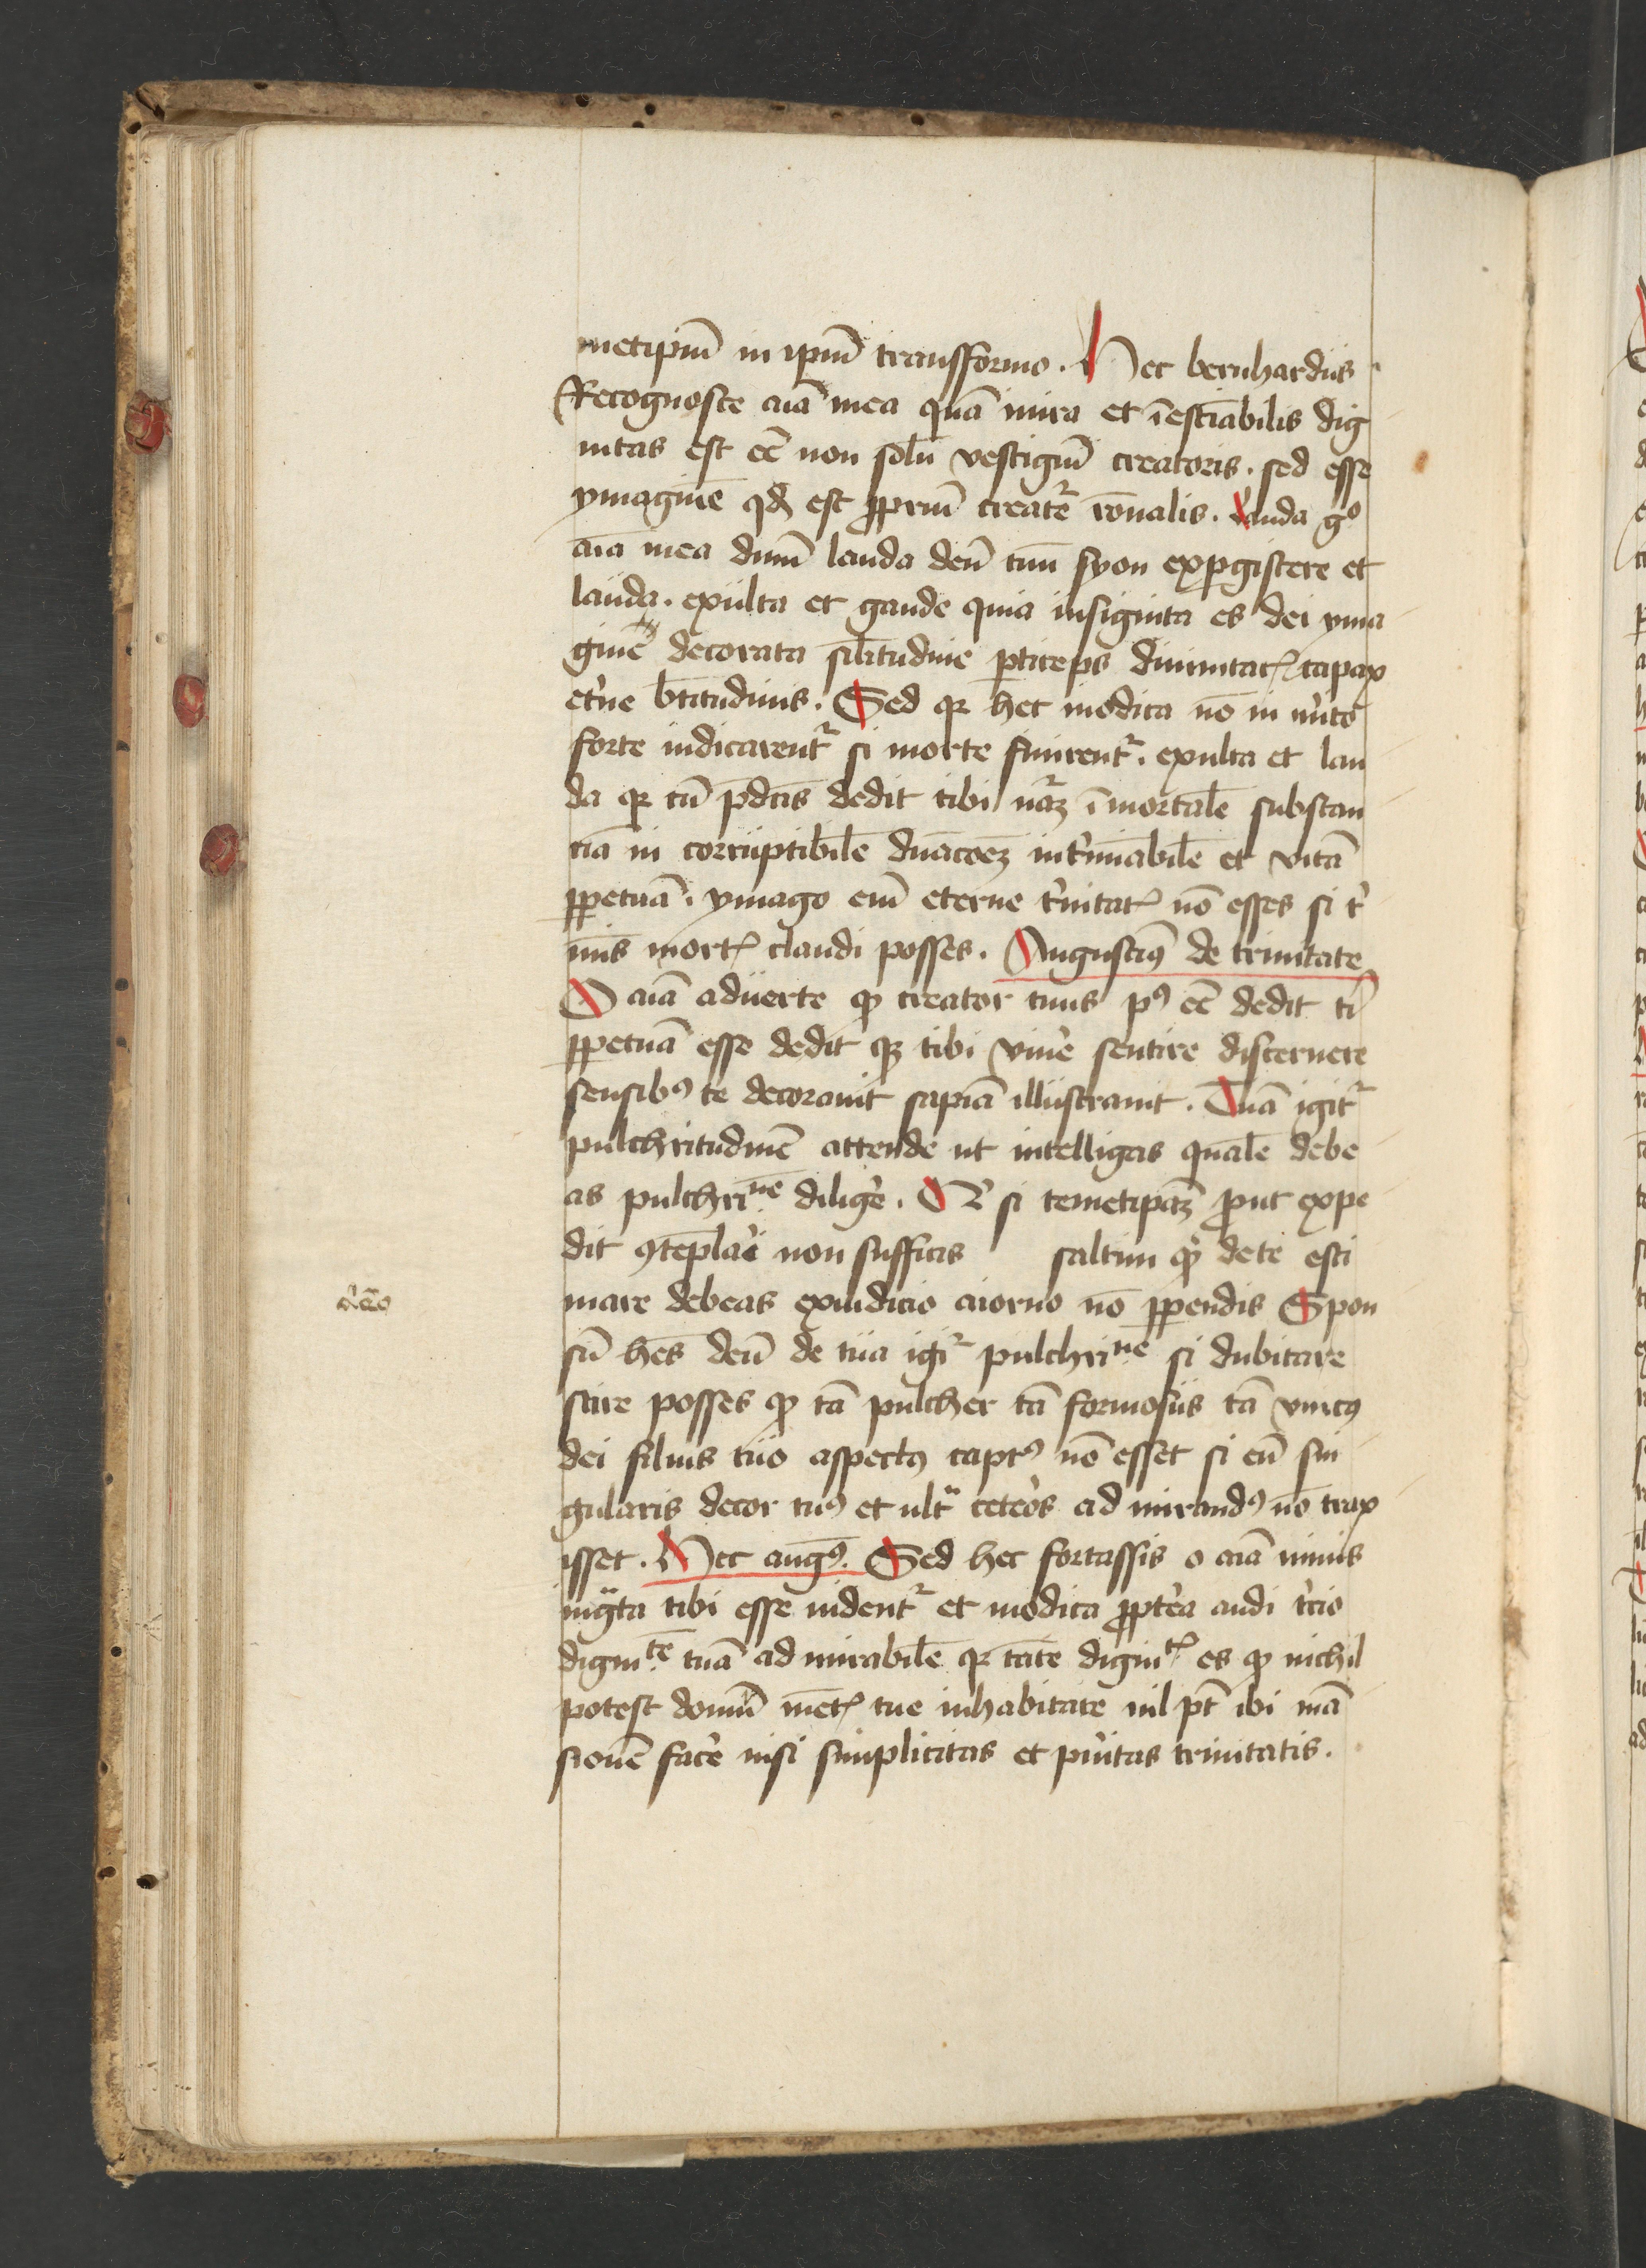 metipm̄ in ipm̄ transformo. Hec bernhardus
Recognosce aīa mea quā mira et īestiābilis dig
nitas est eē non solū vestigiū creatoris. sed esse
ymaginē qđ est ꝓpriū creatēr rōnalis. Lauda gͦ
aīa mea dnm̄ lauda deū tuū syon expgiscere et
lauda. exulta et gaude quia insignita es dei yma
gine decorata silitudine pticeps diuinitatꝭ capax
etne btitudinis. Sed qꝛ hec modica nō in mito
forte iudicarentᷣ si morte finirentᷣ. exulta et lau
da qꝛ cū pdcīs dedit tibi natᷣaꝫ īmortalē substan
ciā in corruptibilē duracōeꝫ intmiabilē et vitā
ꝑpetuā. ymago em̄ eterne tnitatꝭ nō esses si t
mīs mortꝭ claudi posses. Augustinꝰ de trinitate
O aīa aduerte qꝙ creator tuus pꝰ eē dedit ti
ꝑpetuā esse dedit qꝫ tibi viuē sentire discernere
sensibꝰ te decorauit sapiā illustrauit. Tuā igitᷣ
pulchritudinē attende ut intelligas qualē debe
as pulchriⁿᵉ diligē. Qͥ si temetipāꝫ ꝓut expe
dit ꝯtēplaī non sufficis saltim qꝙ de te esti
mare debeas exiudicio aiorno nō ꝑpendis Spon
sū hēs deū de tua igiᷣ pulchriⁿᵉ si dubitare
scire posses qꝙ tā pulcher tā formosus tā vnicꝰ
dei filius tuo aspectu captꝰ nō esset si eū sin
gularis decor tuꝰ et ultᷓ ceteōs ad mirandꝰ nō trax
isset. Hec augꝰ. Sed hec fortassis o aīa nimis
ingᷓta tibi esse uidentᷣ et modica ꝓptēa audi tcio
dignitᵉ tuā ad mirabilē qꝛ tātē dignitꝭ es qꝙ nichil
potest domū mētꝭ tue inhabitare nil pt̄ ibi mā
sionē facē nisi simplicitas et puitas trinitatis.